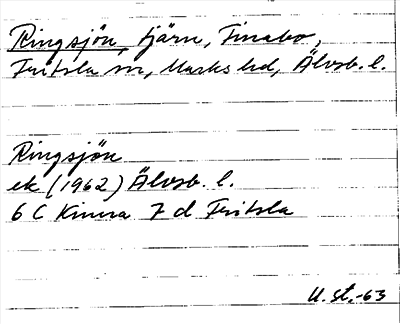 Ringsjön, tjärn, Finabo,
Fritsla sn, Marks hd, Älvsb. l.
Ringsjön
ek (1962) Älvsb. l.
6 C Kinna 7 d Fritsla
U. st. -63